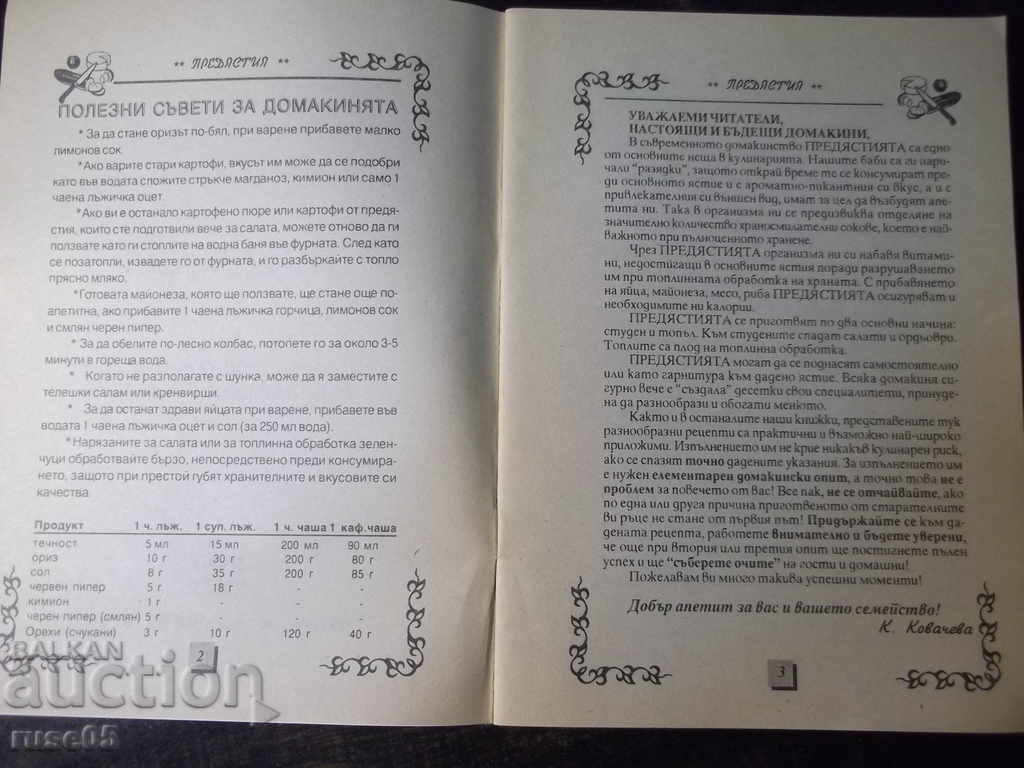 ** ПРЕДЯСТИЯ **
ПОЛЕЗНИ СЪВЕТИ ЗА ДОМАКИНЯТА
*За да стане оризът по-бял, при варене прибавете малко
лимонов сок.
*Ако варите стари картофи, вкусът им може да се подобри
като във водата сложите стръкче магданоз, кимион или само 1
чаена лъжичка оцет.
*Ако ви е останало картофено пюре или картофи от предя-
стия, които сте подготвили вече за салата, можете отново да ги
ползвате като ги стоплите на водна баня във фурната. След като
се позатопли, извадете го от фурната, и го разбъркайте с топло
прясно мляко.
*Готовата майонеза, която ще ползвате, ще стане още по-
апетитна, ако прибавите 1 чаена лъжичка горчица, лимонов сок
и смлян черен пипер.
* За да обелите по-лесно колбас, потопете го за около 3-5
минути в гореща вода.
* Когато не разполагате с шунка, може да я заместите с
телешки салам или кренвирши.
* За да останат здрави яйцата при варене, прибавете във
водата 1 чаена лъжичка оцет и сол (за 250 мл вода).
*Нарязаните за салата или за топлинна обработка зелен-
чуци обработвайте бързо, непосредствено преди консумира-
нето, защото при престой губят хранителните и вкусовите си
качества.
Продукт 1 ч. лъж. 1 суп. лъж. 1 ч. чаша 1 каф.чаша
течност 5 мл 15 мл 200 мл 90 мл
ориз 10 г 30 г 200 г 80 г
сол 8 г 35 г 200 г 85 г
червен пипер 5 г 18 г - -
кимион - 1 г - - -
черен пипер (смлян) 5 г - - -
Орехи (счукани) 3 г 10 г 120 г 40 г
2
** ПРЕДЯСТИЯ **
УВАЖАЕМИ ЧИТАТЕЛИ,
НАСТОЯЩИ И БЪДЕЩИ ДОМАКИНИ,
В съвременното домакинство ПРЕДЯСТИЯТА са едно
от основните неща в кулинарията. Нашите баби са ги нари-
чали "разядки", защото открай време те се консумират пре-
ди основното ястие и с ароматно-пикантния си вкус, а и с
привлекателния си външен вид, имат за цел да възбудят апе-
тита ни. Така в организма ни се предизвиква отделяне на
значително количество храносмилателни сокове, което е най-
важното при пълноценното хранене.
Чрез ПРЕДЯСТИЯТА организма ни си набавя витами-
ни, недостигащи в основните ястия поради разрушаването
им при топлинната обработка на храната. С прибавянето
на яйца, майонеза, месо, риба ПРЕДЯСТИЯТА осигуряват и
необходимите ни калории.
ПРЕДЯСТИЯТА се приготвят по два основни начина:
студен и топъл. Към студените спадат салати и ордьоври.
Топлите са плод на топлинна обработка.
ПРЕДЯСТИЯТА могат да се поднасят самостоятелно
или като гарнитура към дадено ястие. Всяка домакиня си-
гурно вече е "създала" десетки свои специалитети, принуде-
на да разнообрази и обогати менюто.
Както и в останалите наши книжки, представените тук
разнообразни рецепти са практични и възможно най-широко
приложими. Изпълнението им не крие никакъв кулинарен риск,
ако се спазят точно дадените указания. За изпълнението им
е нужен елементарен домакински опит, а точно това не е
проблем за повечето от вас! Все пак, не се отчайвайте, ако
по една или друга причина приготвеното от старателните
ви ръце не стане от първия път! Придържайте се към да-
дената рецепта, работете внимателно и бъдете уверени,
че още при втория или третия опит ще постигнете пълен
успех и ще "съберете очите" на гости и домашни!
Пожелавам ви много такива успешни моменти!
Добър апетит за вас и вашето семейство!
К. Ковачева
3
BALKAN
auction
ruse05